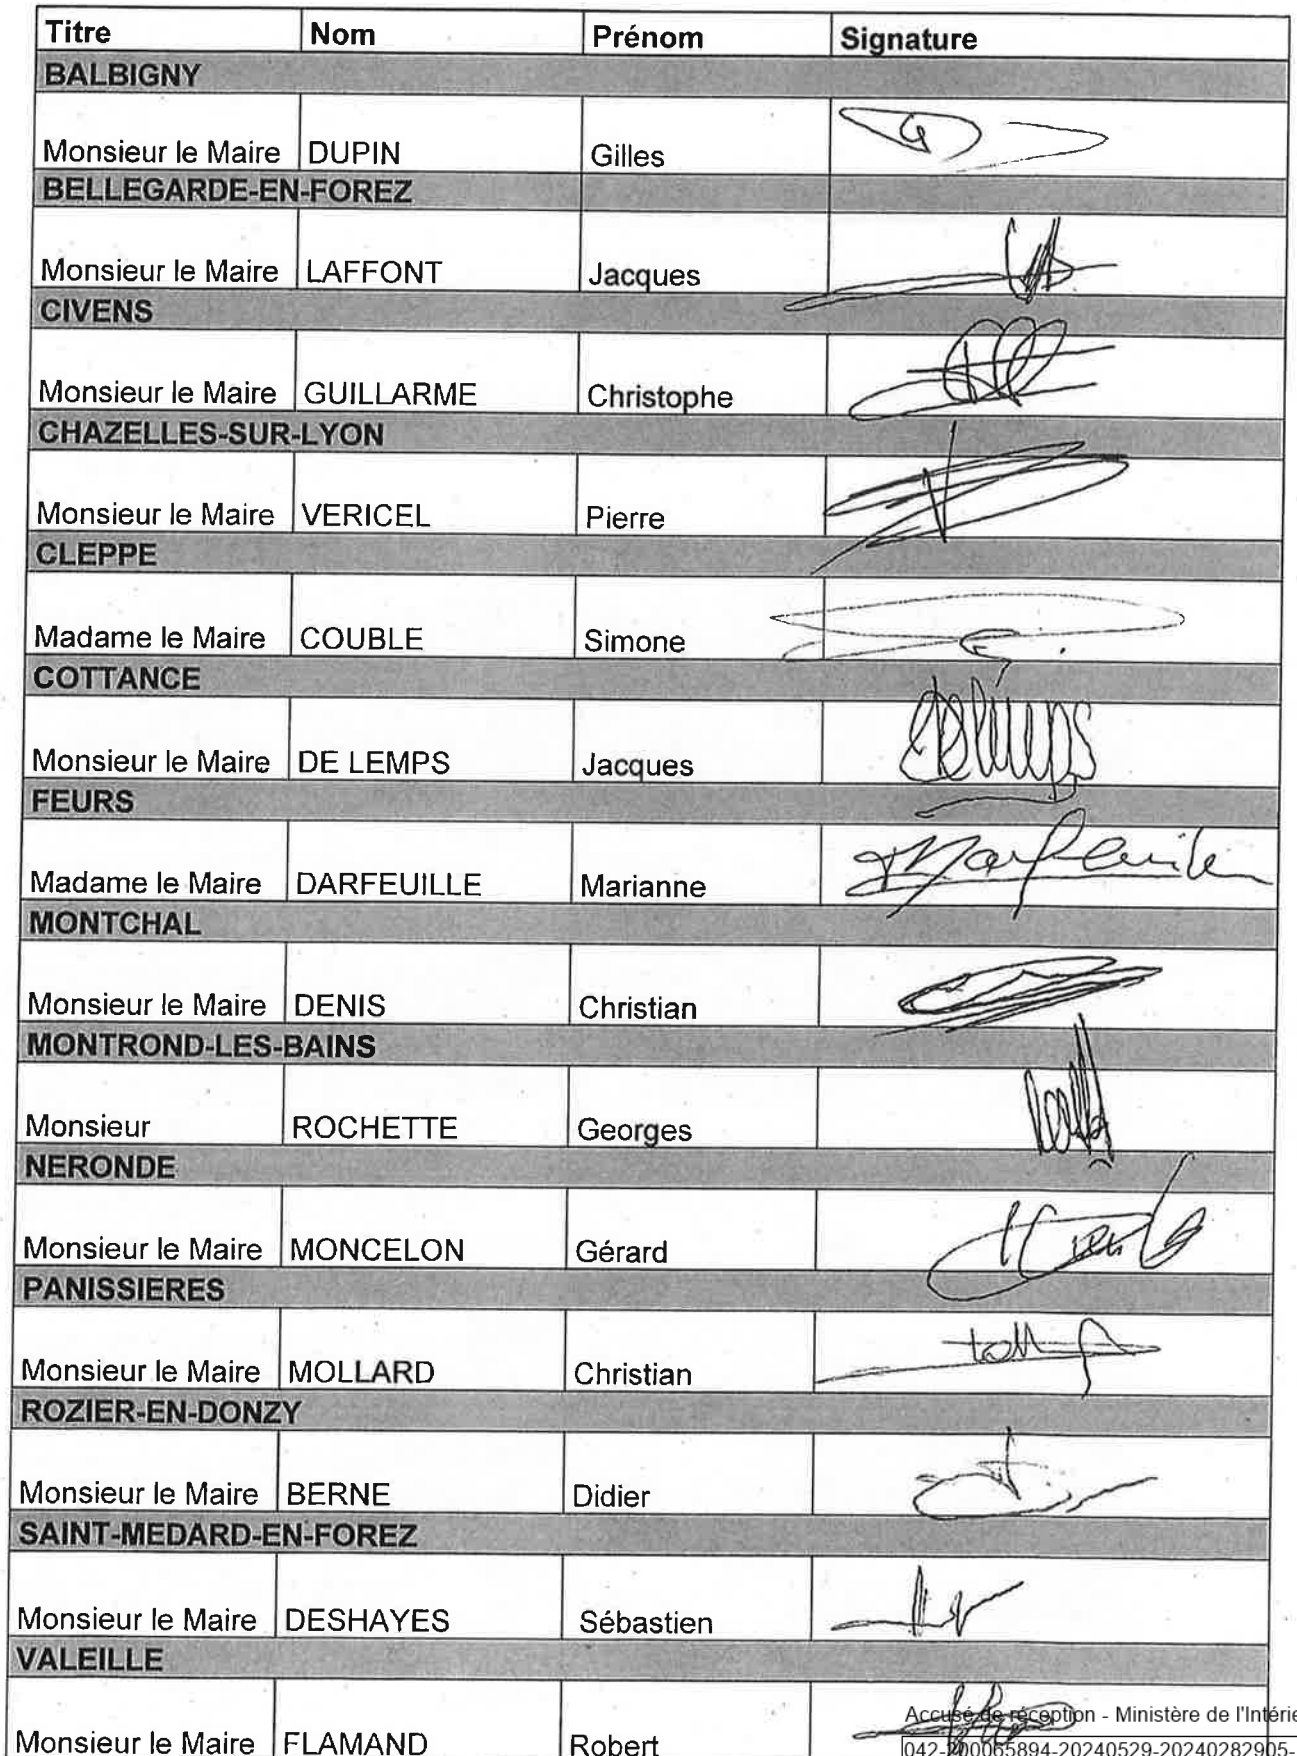 Titre Nom Prénom Signature
BALBIGNY
Monsieur le Maire DUPIN Gilles
BELLEGARDE-EN-FOREZ
Monsieur le Maire LAFFONT Jacques
CIVENS
Monsieur le Maire GUILLARME Christophe
CHAZELLES-SUR-LYON
Monsieur le Maire VERICEL Pierre
CLEPPE
Madame le Maire COUBLE Simone
COTTANCE
Monsieur le Maire DE LEMPS Jacques
FEURS
Madame le Maire DARFEUILLE Marianne
MONTCHAL
Monsieur le Maire DENIS Christian
MONTROND-LES-BAINS
Monsieur ROCHETTE Georges
NERONDE
Monsieur le Maire MONCELON Gérard
PANISSIERES
Monsieur le Maire MOLLARD Christian
ROZIER-EN-DONZY
Monsieur le Maire BERNE Didier
SAINT-MEDARD-EN-FOREZ
Monsieur le Maire DESHAYES Sébastien
VALEILLE
Accusé de réception - Ministère de l'Intérie
Monsieur le Maire FLAMAND Robert
042-200065894-20240529-20240282905-